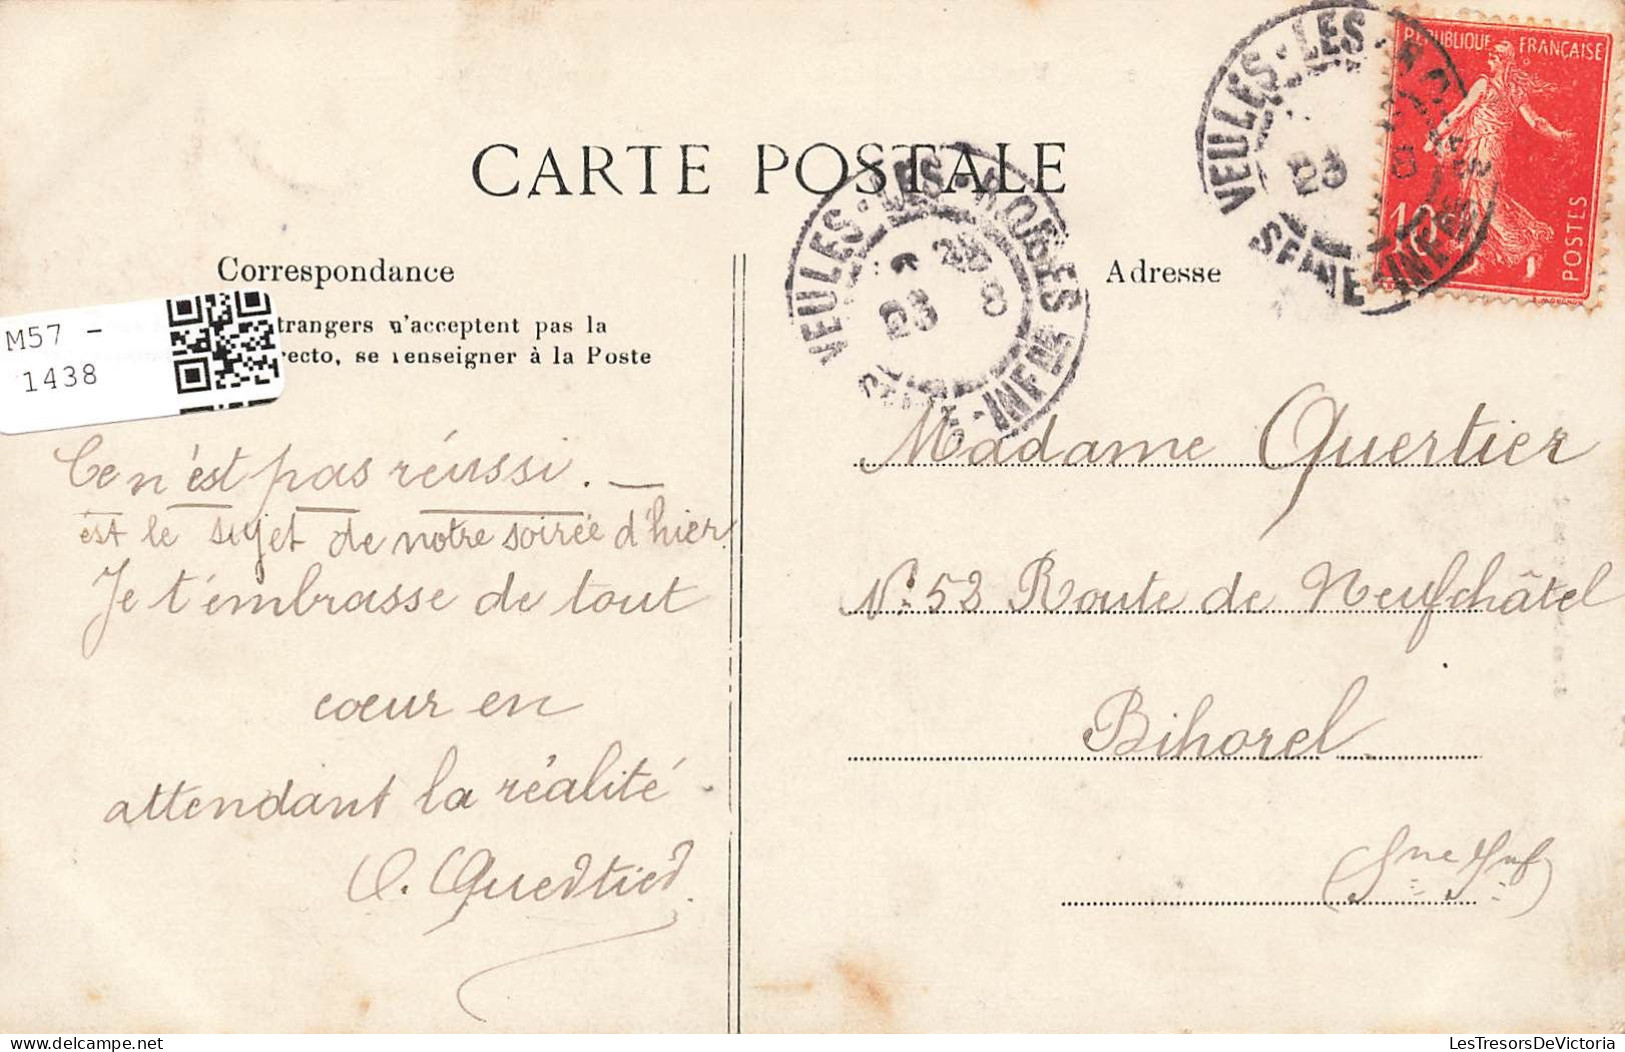 CARTE POSTALE
Correspondance
trangers n'acceptent pas la
recto, se renseigner à la Poste
M57 -
1438
Ce n'est pas réussi. —
est le sujet de notre soirée d'hier.
Je t'embrasse de tout
cœur en
attendant la réalité.
O. Quertier
VEULES-LES-ROSES
23 8
SEINE-INFRE
Adresse
VEULES-LES-ROSES
23 8
SEINE-INFRE
REPUBLIQUE FRANÇAISE
10c
POSTES
Madame Quertier
N° 52 Route de Neufchâtel
Bihorel
(Sne Inf)
LesTresorsDeVictoria.com
LesTresorsDeVictoria